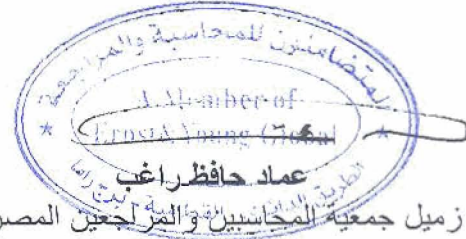 المتضامنون للمحاسبة والمراجعة
A Member of
Ernst & Young Global
عماد حافظ راغب
زميل جمعية المحاسبين والمراجعين المصر